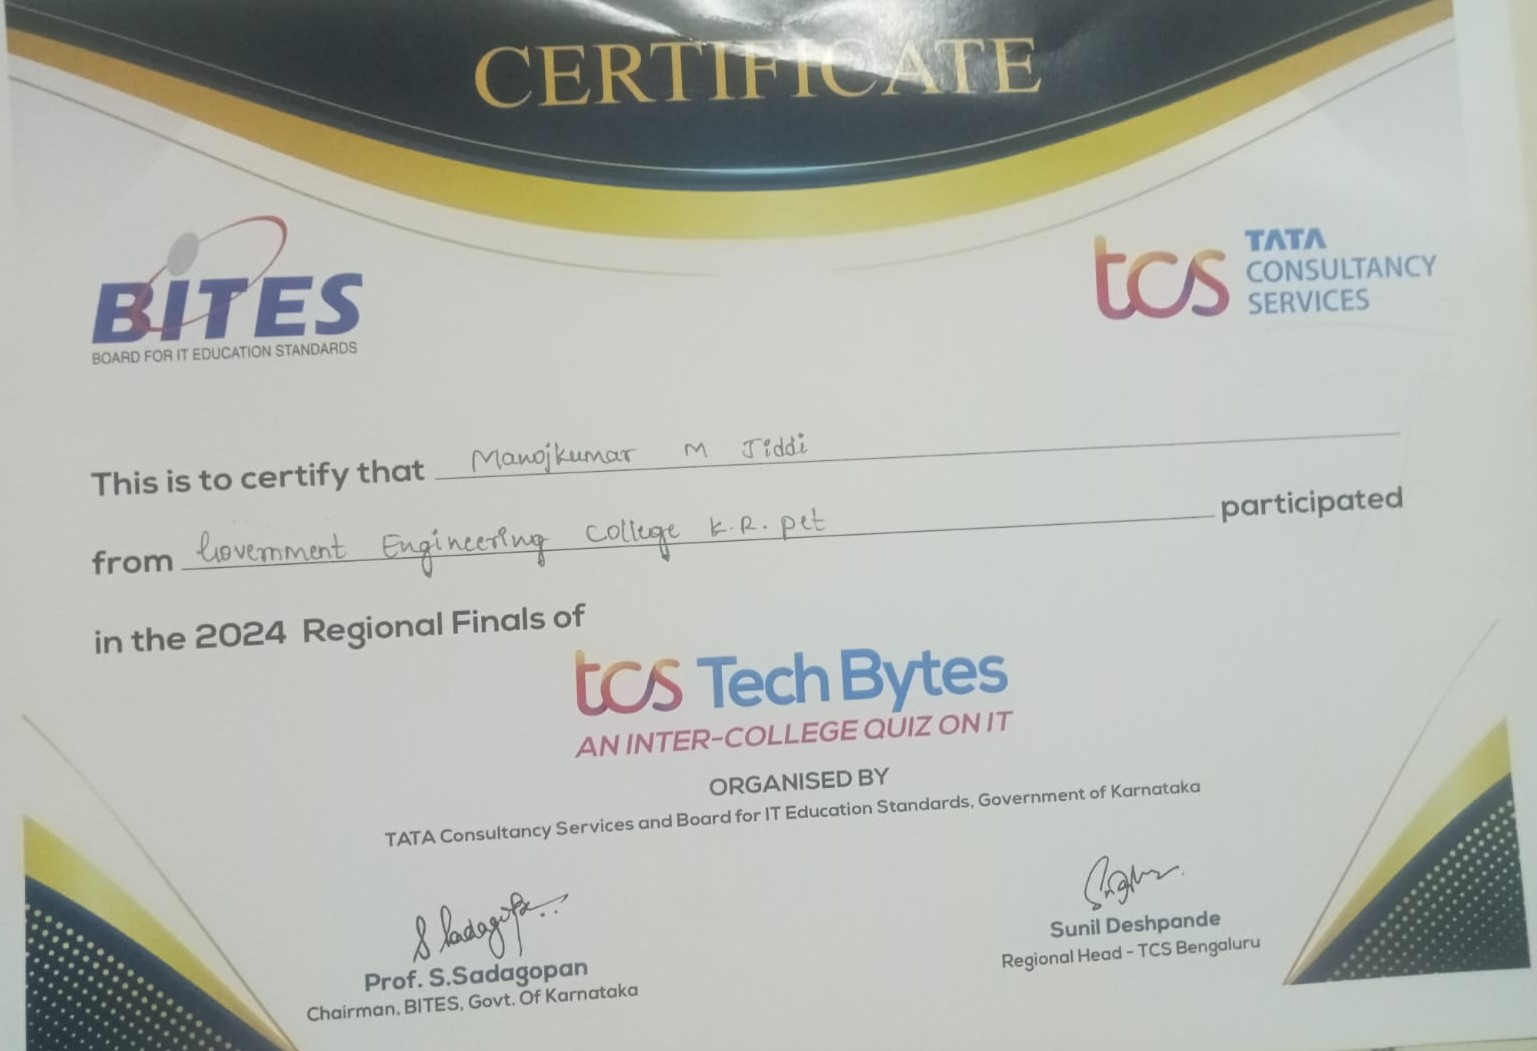 CERTIFICATE
BITES
BOARD FOR IT EDUCATION STANDARDS
tcs TATA
CONSULTANCY
SERVICES
This is to certify that Manojkumar M Jiddi
from Government Engineering College K.R. pet participated
in the 2024 Regional Finals of
tcs Tech Bytes
AN INTER-COLLEGE QUIZ ON IT
ORGANISED BY
TATA Consultancy Services and Board for IT Education Standards, Government of Karnataka
S Sadagopan
Prof. S.Sadagopan
Chairman, BITES, Govt. Of Karnataka
Sunil Deshpande
Regional Head - TCS Bengaluru